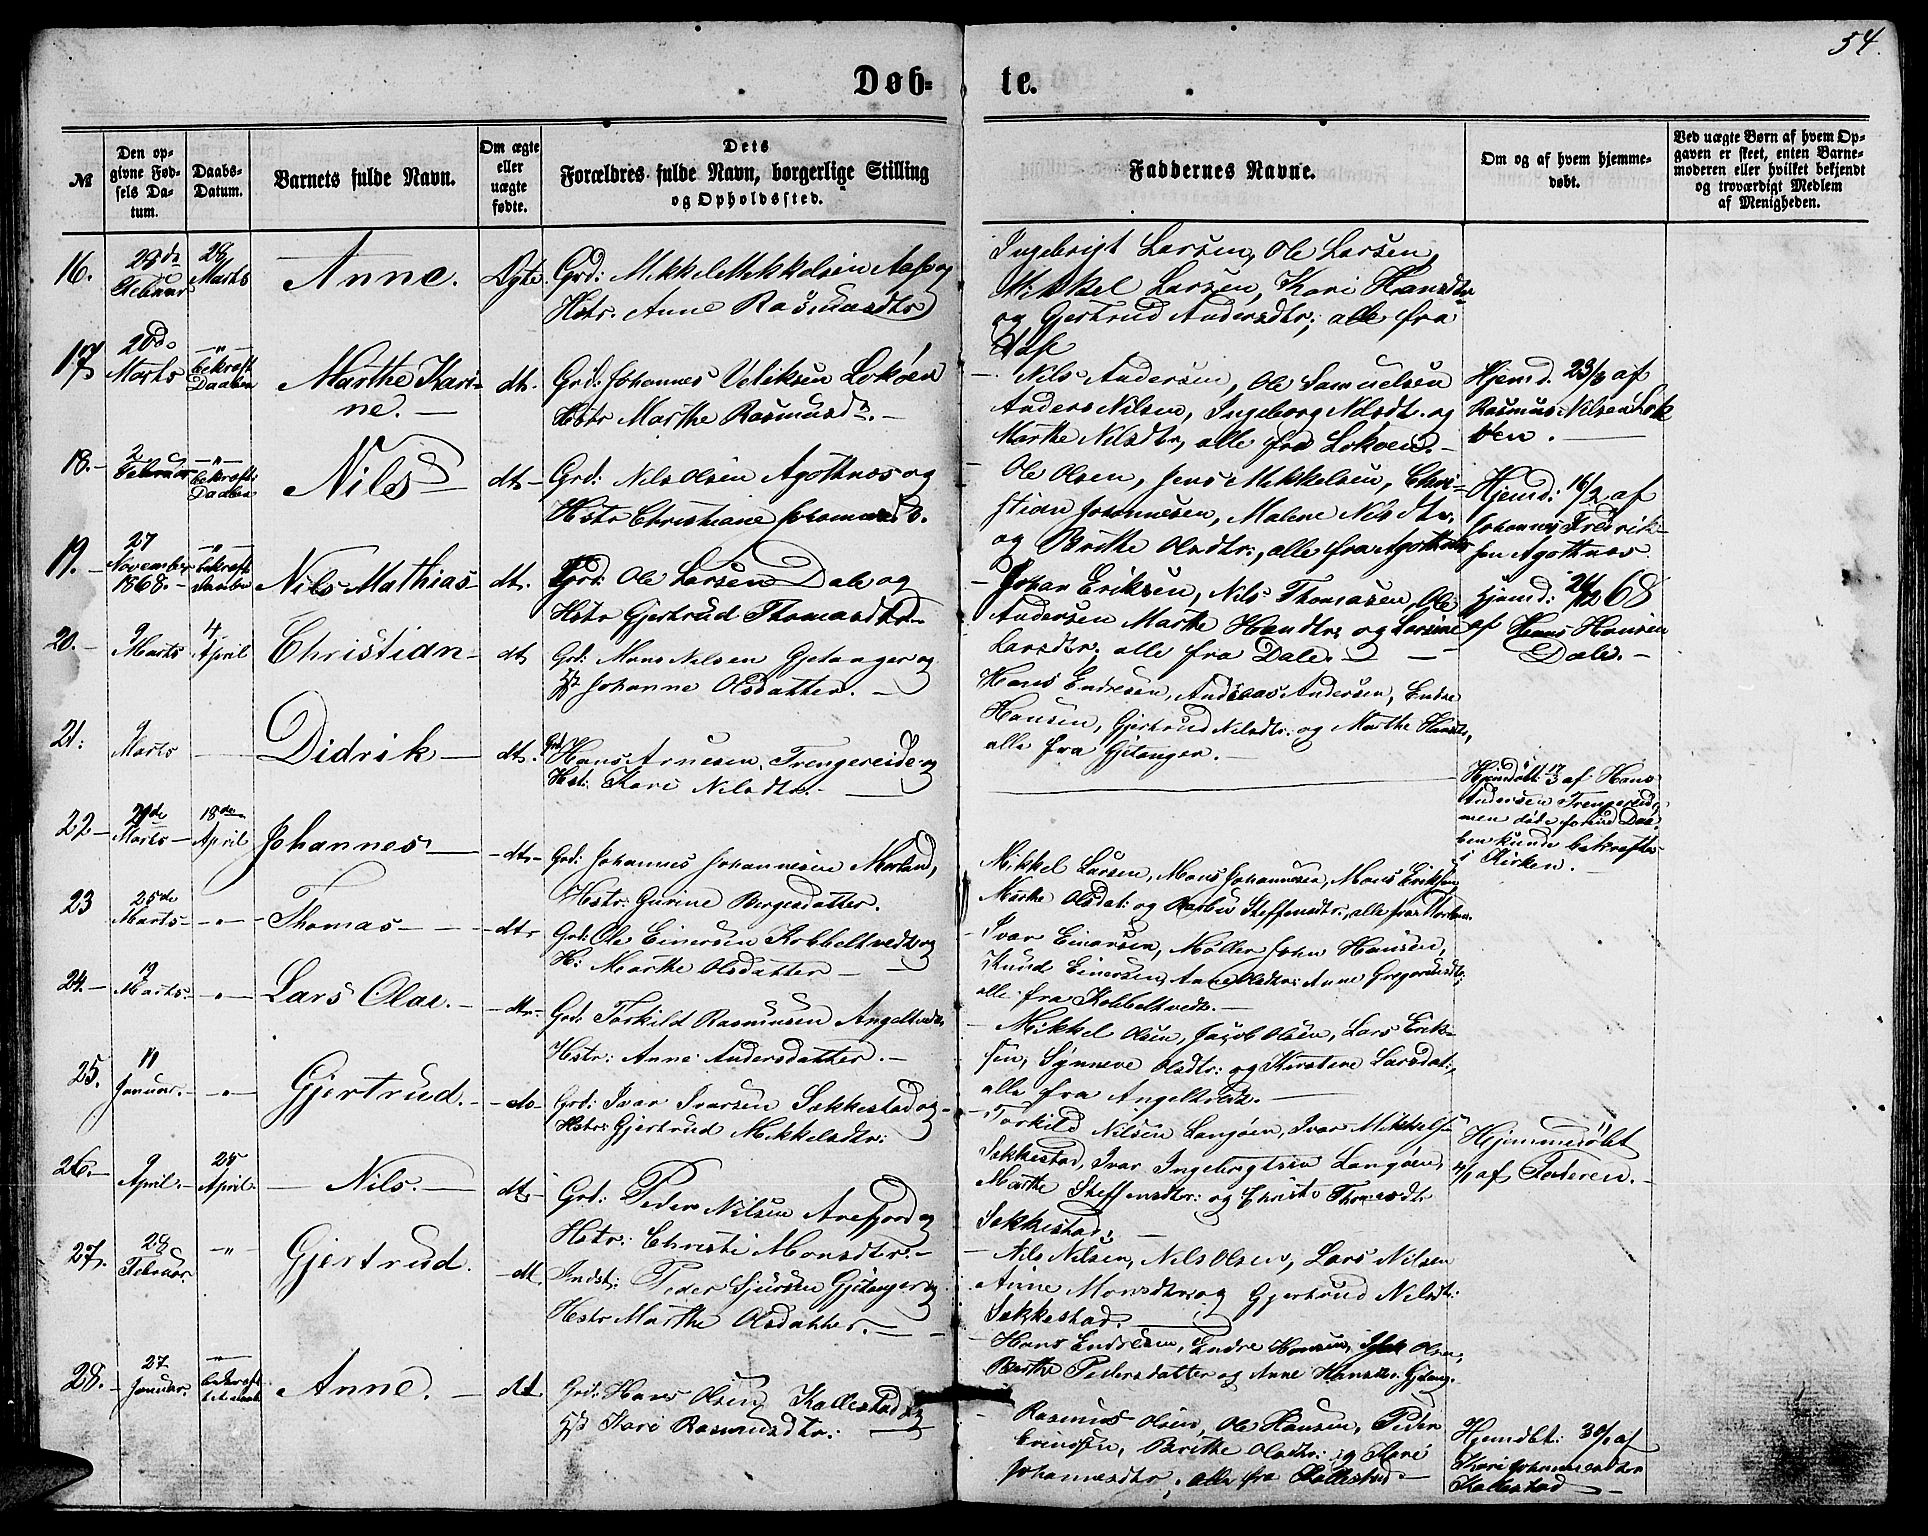 54.
Døb-
te.
№
Den op-
givne Fød-
sels Da-
tum.
Daabs-
Datum.
Barnets fulde Navn.
Om ægte
eller
uægte
fødte.
Dets
Forældres fulde Navn, borgerlige Stilling
og Opholdssted.
Faddernes Navne.
Om og af hvem hjemme-
døbt.
Ved uægte Børn af hvem Op-
gaven er skeet, enten Barne-
moderen eller hvilket bekjendt
og troværdigt Medlem
af Menigheden.
16.
28de
Februar
28
Marts
Anne.
Ægte
Grd: Mikkel Mikkelsen Aase og
Hstr. Anne Rasmusdtr
Ingebrigt Larsen, Ole Larsen,
Mikkel Larsen, Kari Hansdtr
og Gjertrud Andersdtr; alle fra
Aase
17.
20de
Marts
— „ —
bekræft.
Daaben
Marthe Kari-
ne. —
dt.
Grd: Johannes Lokøen
Hstr Marthe Rasmusdr. —
— Nils Andersen, Ole Samuelsen
Anders Nilsen, Ingeborg Nilsdt. og
Marthe Nilsdtr, alle fra Lokøen. —
Hjemd. 23/3 af
Rasmus Nilsen Lok
øen. —
18. —
2
Februar
— „ —
bekræft.
Daaben
Nils
dt —
Grd: Nils Olsen Agotnæs og
Hstr Christiane
— Ole Olsen, Jens Mikkelsen, Chri-
stian Johannesen, Malene Nilsdtr.
og Brithe Olsdtr:, alle fra Agotnæs
Hjemd: 16/2 af
Johannes Fredrik-
sen Agotnæs
19. —
27
November
1868. —
— „ —
bekræft.
Daaben
Nils Mathias —
dt.
Grd: Ole Larsen Dale og
Hstr Gjertrud Thomasdtr —
— Johan Eriksen, Nils Thomasen, Ole
Andersen Marthe Hansdtr og Larsine
Larsdtr; alle fra Dale. —
Hjemd: 68
af Hans Hansen
Dale. —
20. —
9
Marts
4
April
Christian —
dt
Grd: Mons Nilsen Gjetanger og
H Johanne Olsdatter. —
Hans Endresen, Andreas Andersen, Endre
Hansen, Gjertrud Nilsdtr: og Marthe Hansdtr,
alle fra Gjetanger. —
21.
9
Marts
—
Didrik —
dt.
Grd: Hans Arnesen, Trengereide og
Hst: Kari Nilsdtr. —
Hjemdøbt 17/3 af Hans
Andersen Trengereid,
men døde forind Daa-
ben kunde bekræftes
i Kirken.
22 —
21de
Marts —
18de
April
Johannes —
— dt —
Grd: Johannes Johannesen Morland,
Hstr: Gurine Børgesdatter.
Mikkel Larsen, Mons Johannesen, Mons Eriksen,
Marthe Olsdat: og Barbro Steffensdtr:, alle fra Morland
23
25de
Marts —
— „ —
Thomas —
— dt —
Grd: Ole Einersen Kobbeltvedt og
H: Marthe Olsdatter —
— Ivar Einarsen, Møller John Hansen,
Knud Einersen, Anne Olsdtr: Anne Gregoriusdtr;
alle fra Kobbeltvedt. —
24. —
19
Marts. —
— „ —
Lars Olai. —
— dt —
Grd: Torkild Rasmusen Angeltvedt,
Hstr: Anne Andersdatter. —
— Mikkel Olsen, Jacob Olsen, Lars Erik-
sen, Synneve Olsdtr: og Kirstine Larsdat:,
alle fra Angeltvedt. —
25.
11
Januar. —
— „ —
Gjertrud. —
— do —
Grd: Ivar Ivarsen Sekkestad og —
Hstr: Gjertrud Mikkelsdtr:
— Torkild Nilsen Langøen, Ivar Mikkelsen
Sekkestad, Ivar Ingebrigtsen Langøen,
Marthe Steffensdtr: og Christi Thomasdtr
Sekkestad.
Hjemmedøbt
af Faderen. —
26. —
9
April. —
25
April. —
— Nils. —
dt —
Grd: Peder Nilsen Arefjord og
Hstr: Christi Monsdtr: —
— Nils Nilsen, Nils Olsen, Lars Nilsen
Anne Monsdtr og Gjertrud Nilsdt:
Sekkestad. —
27.
28
Februar
— „ —
Gjertrud.
— dt
Indst: Peder Sjursen Gjetanger og
Hstr Marthe Olsdatter. —
— Hans Endresen, Endre Hansen, Olsen,
Brithe Pedersdatter og Anne Hansdtr. Gjetang.
28. —
27
Januar.
— „ —
Anne. —
dt.
Grd: Hans Olsen Kallestad og
H Kari Rasmusdtr: —
— Rasmus Olsen, Ole Hansen, Peder
Brithe Olsdtr: og Kari
Johannesdtr, alle fra Kallestad. —
Hjemdbt: 30/1 af
Kari Johannesdtr
Kallestad —